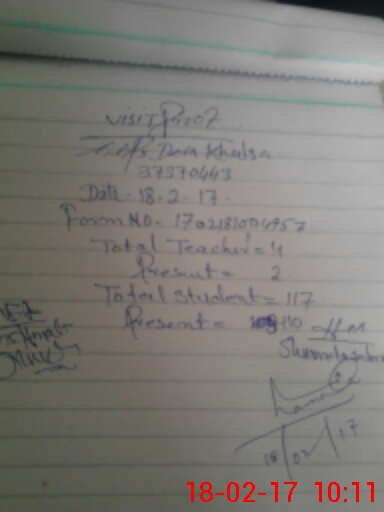 Visit Proof
Dera Khalsa
37370443
Date- 18-2-17.
Form No- 1702181004957
Total Teacher = 4
Present = 2
Total student = 117
Present = 110
18/02/17
18-02-17 10:11